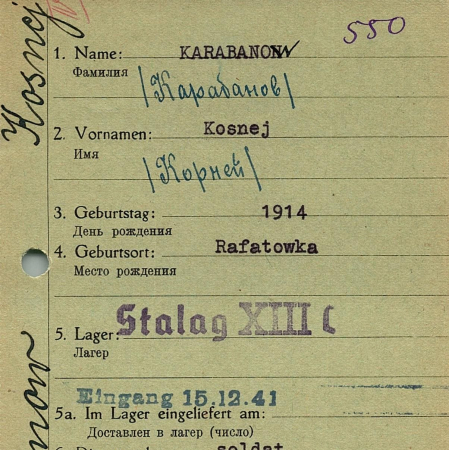 Kosnej
now
550
1. Name: KARABANOW
Фамилия
/Карабанов/
2. Vornamen: Kosnej
Имя
/Корней/
3. Geburtstag: 1914
День рождения
4. Geburtsort: Rafatowka
Место рождения
Stalag XIII C
5. Lager:
Лагер
Eingang 15.12.41
5a. Im Lager eingeliefert am:
Доставлен в лагер (число)
soldat